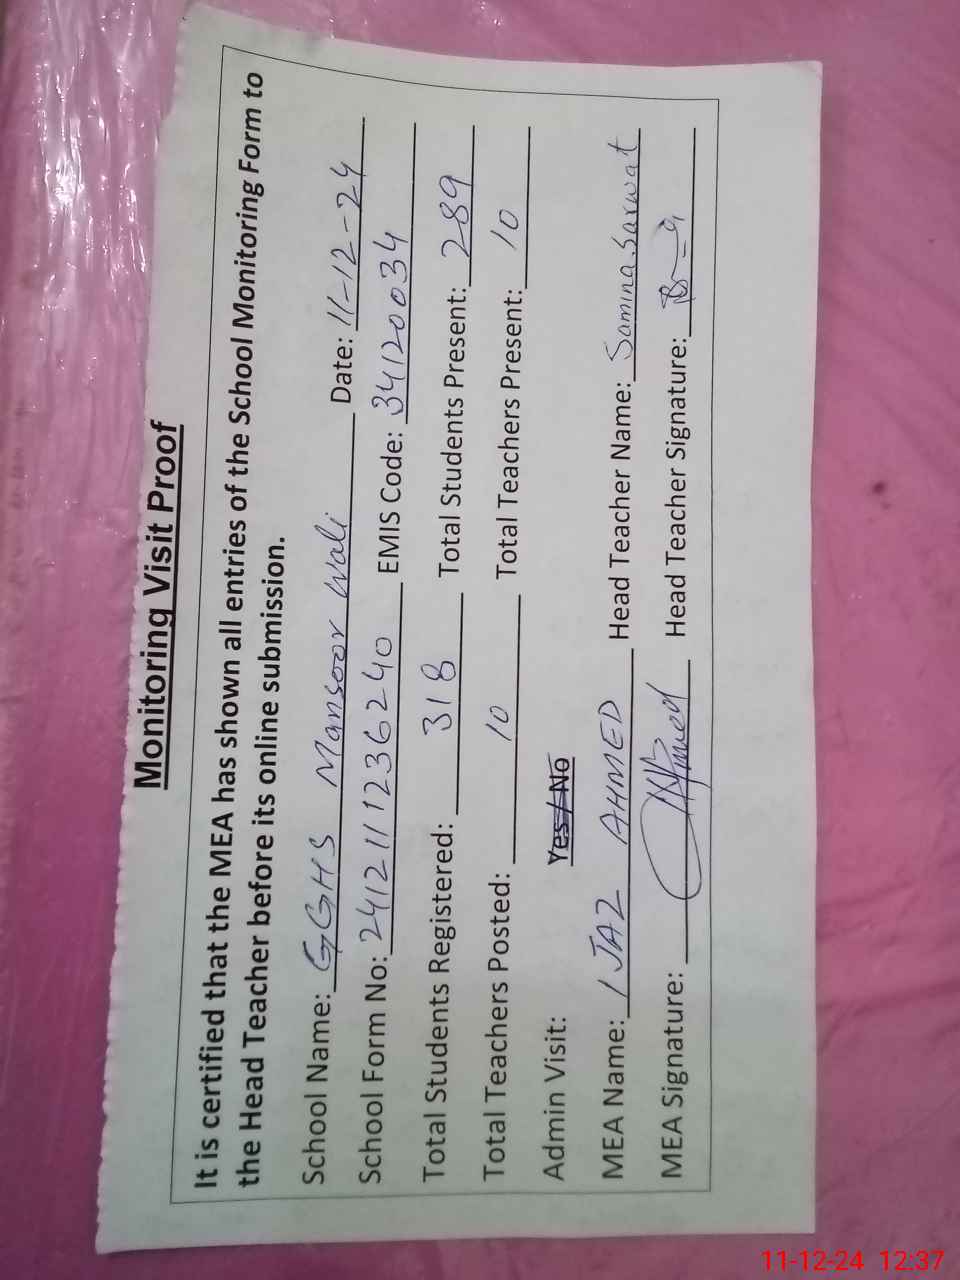 Monitoring Visit Proof
It is certified that the MEA has shown all entries of the School Monitoring Form to
the Head Teacher before its online submission.
School Name: GGHS Mansoor Wali Date: 11-12-24
School Form No: 241211236240 EMIS Code: 34120034
Total Students Registered: 318 Total Students Present: 289
Total Teachers Posted: 10 Total Teachers Present: 10
Admin Visit: Yes / No
MEA Name: IJAZ AHMED Head Teacher Name: Samina Sarwat
MEA Signature: Head Teacher Signature:
11-12-24 12:37